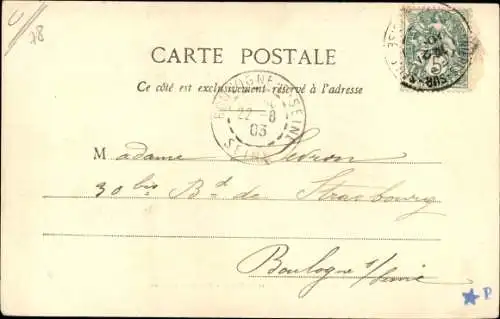 78
CARTE POSTALE
Ce côté est exclusivement réservé à l'adresse
BOULOGNE S SEINE
22 - 8
03
SEINE
Madame
30 bis Bd de Strasbourg
Boulogne s/Seine
★ P.